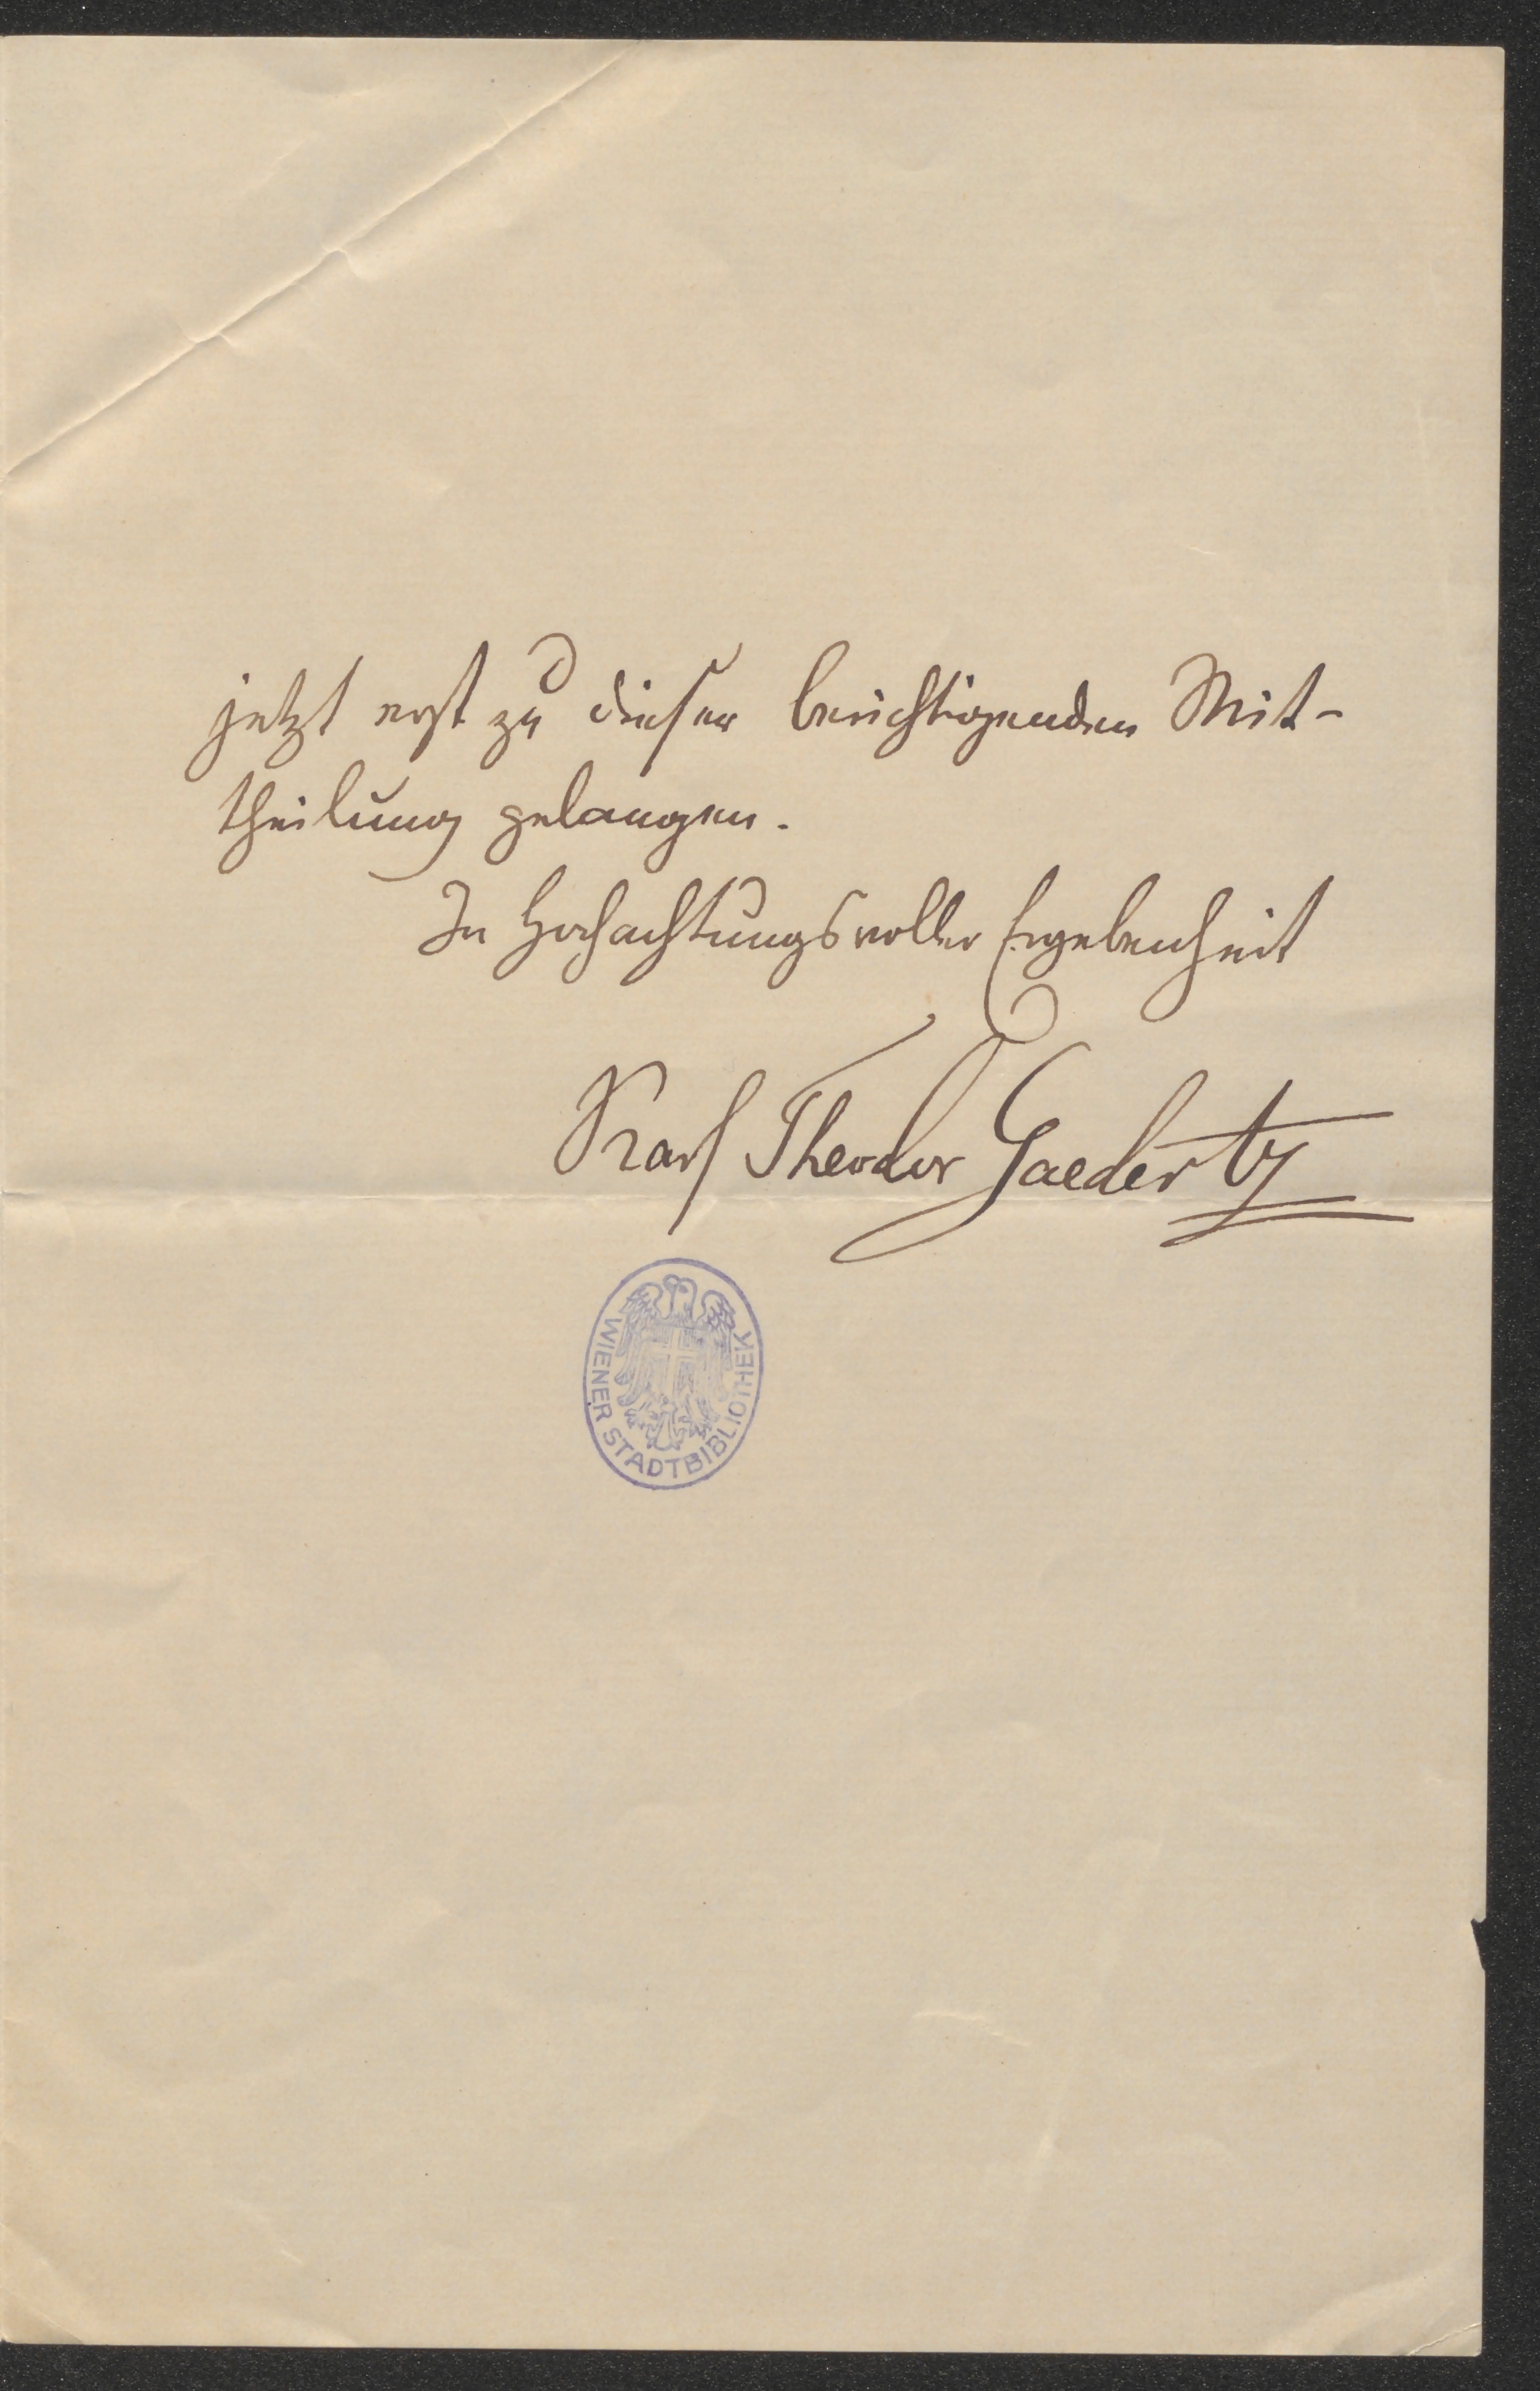 jetzt erst zu dieser berichtigenden Mit-
theilung gelangen.
In hochachtungsvoller Ergebenheit
Karl Theodor Gaedertz
WIENER STADTBIBLIOTHEK